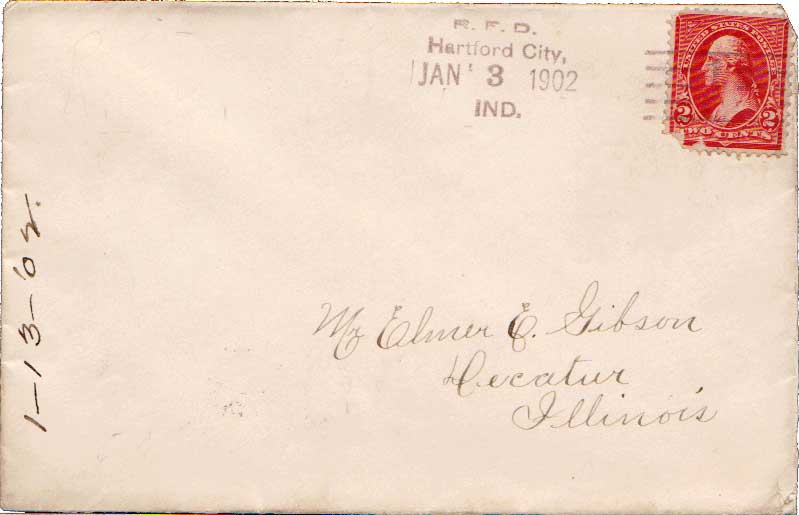 R. F. D.
Hartford City,
JAN 3 1902
IND.
UNITED STATES POSTAGE
2 2
TWO CENTS
Mr Elmer E. Gibson
Decatur
Illinois
1-13-02.